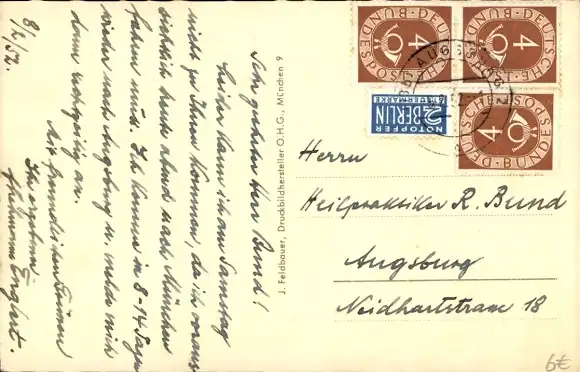 8/2/52.
Sehr geehrter Herr Bund!
Leider kann ich am Samstag
nicht zu Ihnen kommen, da ich voraus-
sichtlich heute abend nach München
fahren muß. Ich komme in 8-14 Tagen
wieder nach Augsburg u. melde mich
dann rechtzeitig an.
Mit freundlichen Grüßen
Ihr ergebener
J. Feldbauer, Druckbildhersteller O.H.G., München 9
DEUTSCHE BUNDESPOST
4
DEUTSCHE BUNDESPOST
4
DEUTSCHE BUNDESPOST
4
NOTOPFER
2 BERLIN
STEUERMARKE
AUGSBURG 2
Herrn
Heilpraktiker R. Bund
Augsburg
Neidhartstrasse 18
6€